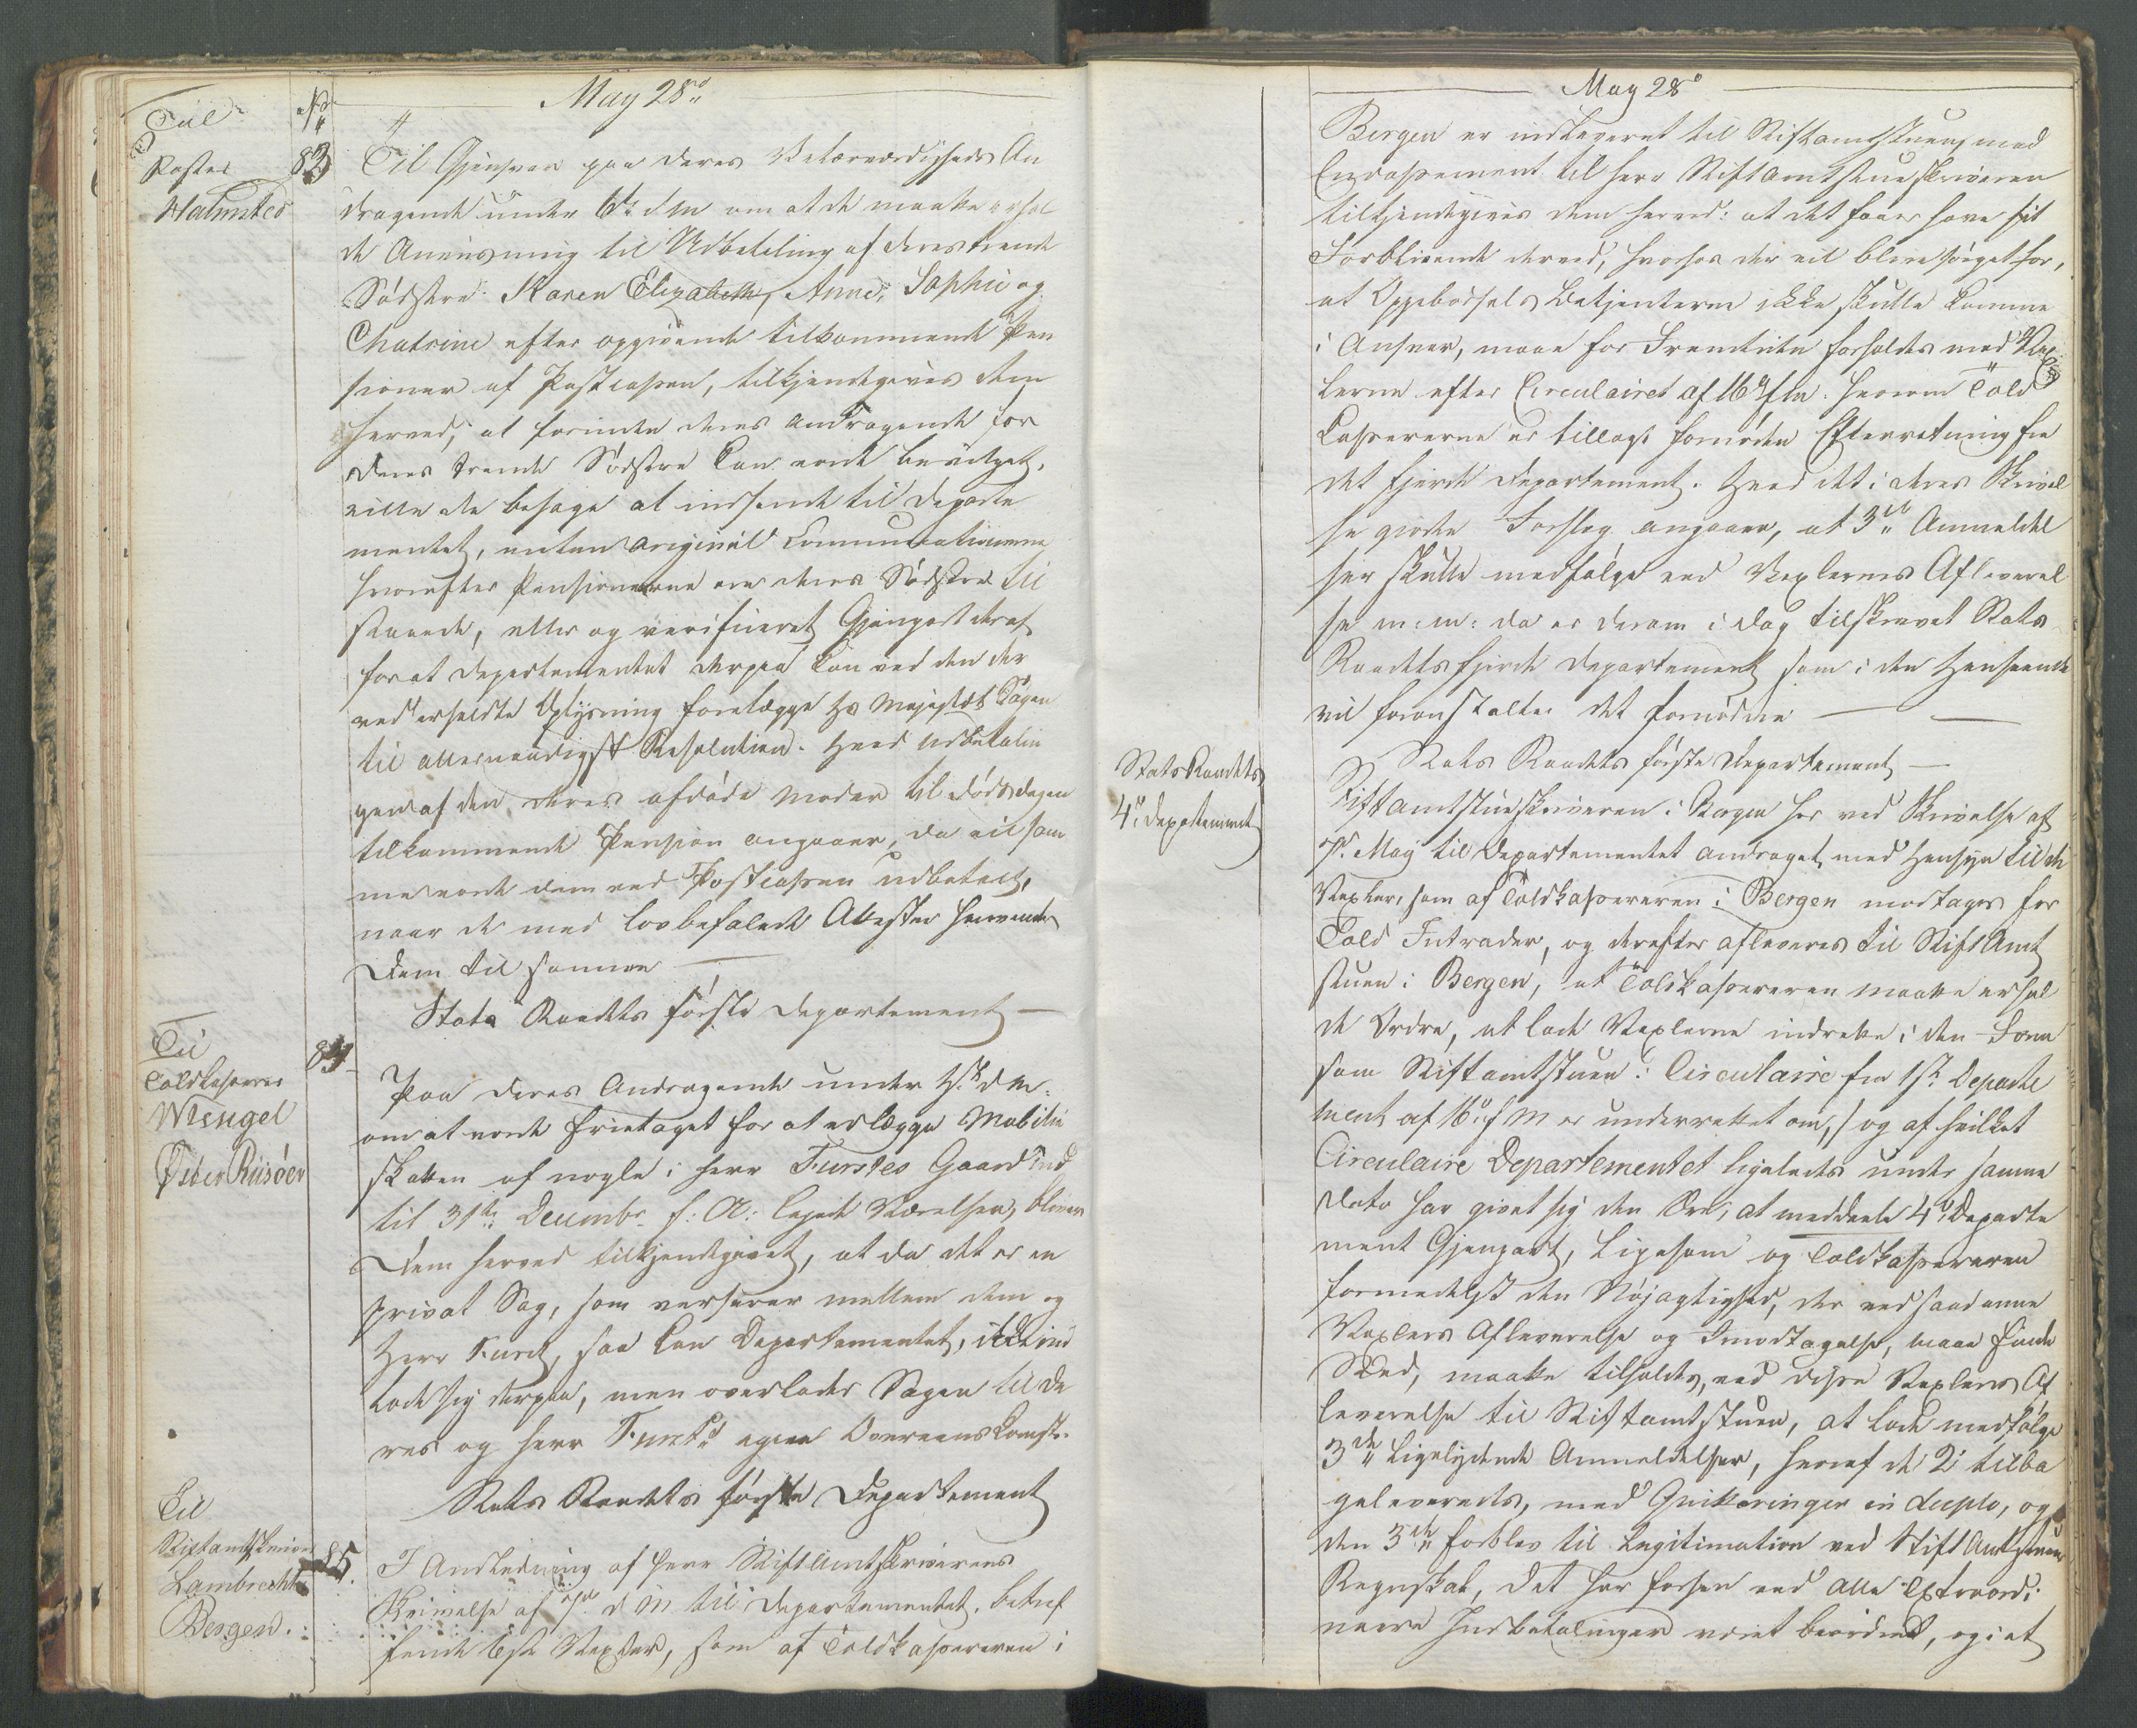 May 28de
Til No
Pastor 83
Halmstes
Til Gjensvar paa deres Velærværdigheds An
dragende under 6te d M om at de maatte erhol
de Anviisning til Udbetaling af deres trende
Södstre Karen Elizabeth, Anne Sophie og
Chatrine efter opgivende tilkommende Pen
sioner af Postcassen, tilkjendegives dem
herved, at forinden deres andragende for
deres trende Södstre kan vorde bevilget,
ville de behage at indsende til Departe
mentet, enten Original Communicationerne
hvorefter Pensionerne ere deres Södstre til
staaede, eller og verificeret Gjenpart deraf
for at Departementet derpaa kan ved den der
ved erholdte Oplysning forelægge Hs Majestæt Sagen
til allernaadigst Resolution. Hvad Udbetalin
gen af den deres afdøde Moder til Dödsdagen
tilkommende Pension angaaer, da vil sam
me vorde dem ved Postcassen udbetalt,
naar de med lovbefalede Attester henvende
dem til samme
Stats Raadets første Departement
Til 84
Toldkasserer
Mengel
Öster Riisöer
Paa deres Andragende under d M.
om at vorde fritaget for at erlægge Mobilie
skatten af nogle i Herr Furstes Gaard ind
til 31te Decembr f: A: lejede Værelser, bliver
Dem herved tilkjendegivet, at da det er en
privat Sag, som verserer mellem dem og
Herr Furst, saa kan Departementet, ikke ind
lade sig derpaa, men overlader Sagen til De
res og Herr Furst's egen Overeenskomst.
Stats Raadets første Departement
Til
Stiftamtskriver 85.
Lambrechts
Bergen.
I Anledning af Herr Stiftamtskriverens
Skrivelse af 7de d M til Departementet, betref
fende Vexler, som af Toldkassereren i
May 28de
Bergen er indleveret til Stiftamtstuen med
Endossement til Herr Stiftamtstueskriveren
tilkjendegives dem herved: at det faaer have sit
Forblivende derved, hvorhos der vil blive sörget for,
at Oppebørsels Betjenterne ikke skulle komme
i Ansvar, maae for Fremtiden forholdes med Vex
lerne efter Circulairet af 16de f M. hvorom Told
Kassererne er tillagt fornøden Efterretning fra
det fjerde Departement. Hvad det i deres Skrivel
se giorte Forslag angaaer, at 3de Anmeldel
ser skulle medfølge ved Vexlernes Afleverel
se m: m: da er derom i Dag tilskrevet Stats
Raadets fjerde Departement som i den Henseende
vil foranstalte det fornødne
Stats Raadets første Departement
Stats Raadets
4de Departement
Stiftamtstueskriveren i Bergen har ved Skrivelse af
7de May til Departementet andraget, med Hensyn til de
Vexler, som af Toldkassereren i Bergen modtages for
Told Intrader, og derefter afleveres til StiftAmt
stuen i Bergen, at Toldkassereren maatte erhol
de Ordre, at lade Vexlerne indrette i den Form
som Stiftamtstuen i Circulaire fra 1ste Departe
ment af 16de f M er underrettet om, og af hvilket
Circulaire Departementet ligeledes under samme
Dato har givet sig den Ære, at meddeele 4de Departe
ment Gjenpart, ligesom og Toldkassereren
formedelst den Nøjagtighed, der ved saadanne
Vexlers Afleverelse og Imodtagelse, maae finde
Sted, maatte tilholdes, ved disse Vexlers Af
leverelse til Stiftamtstuen, at lade medfølge
3de ligelydende Anmeldelser, hvoraf de 2 tilba
geleveredes, med Qvitteringer in duplo, og
den 3die forblev til Legitimation ved StiftAmtstuens
Regnskab, det har forhen ved alle Extraordi
naire Indbetalinger været beordret, og i at